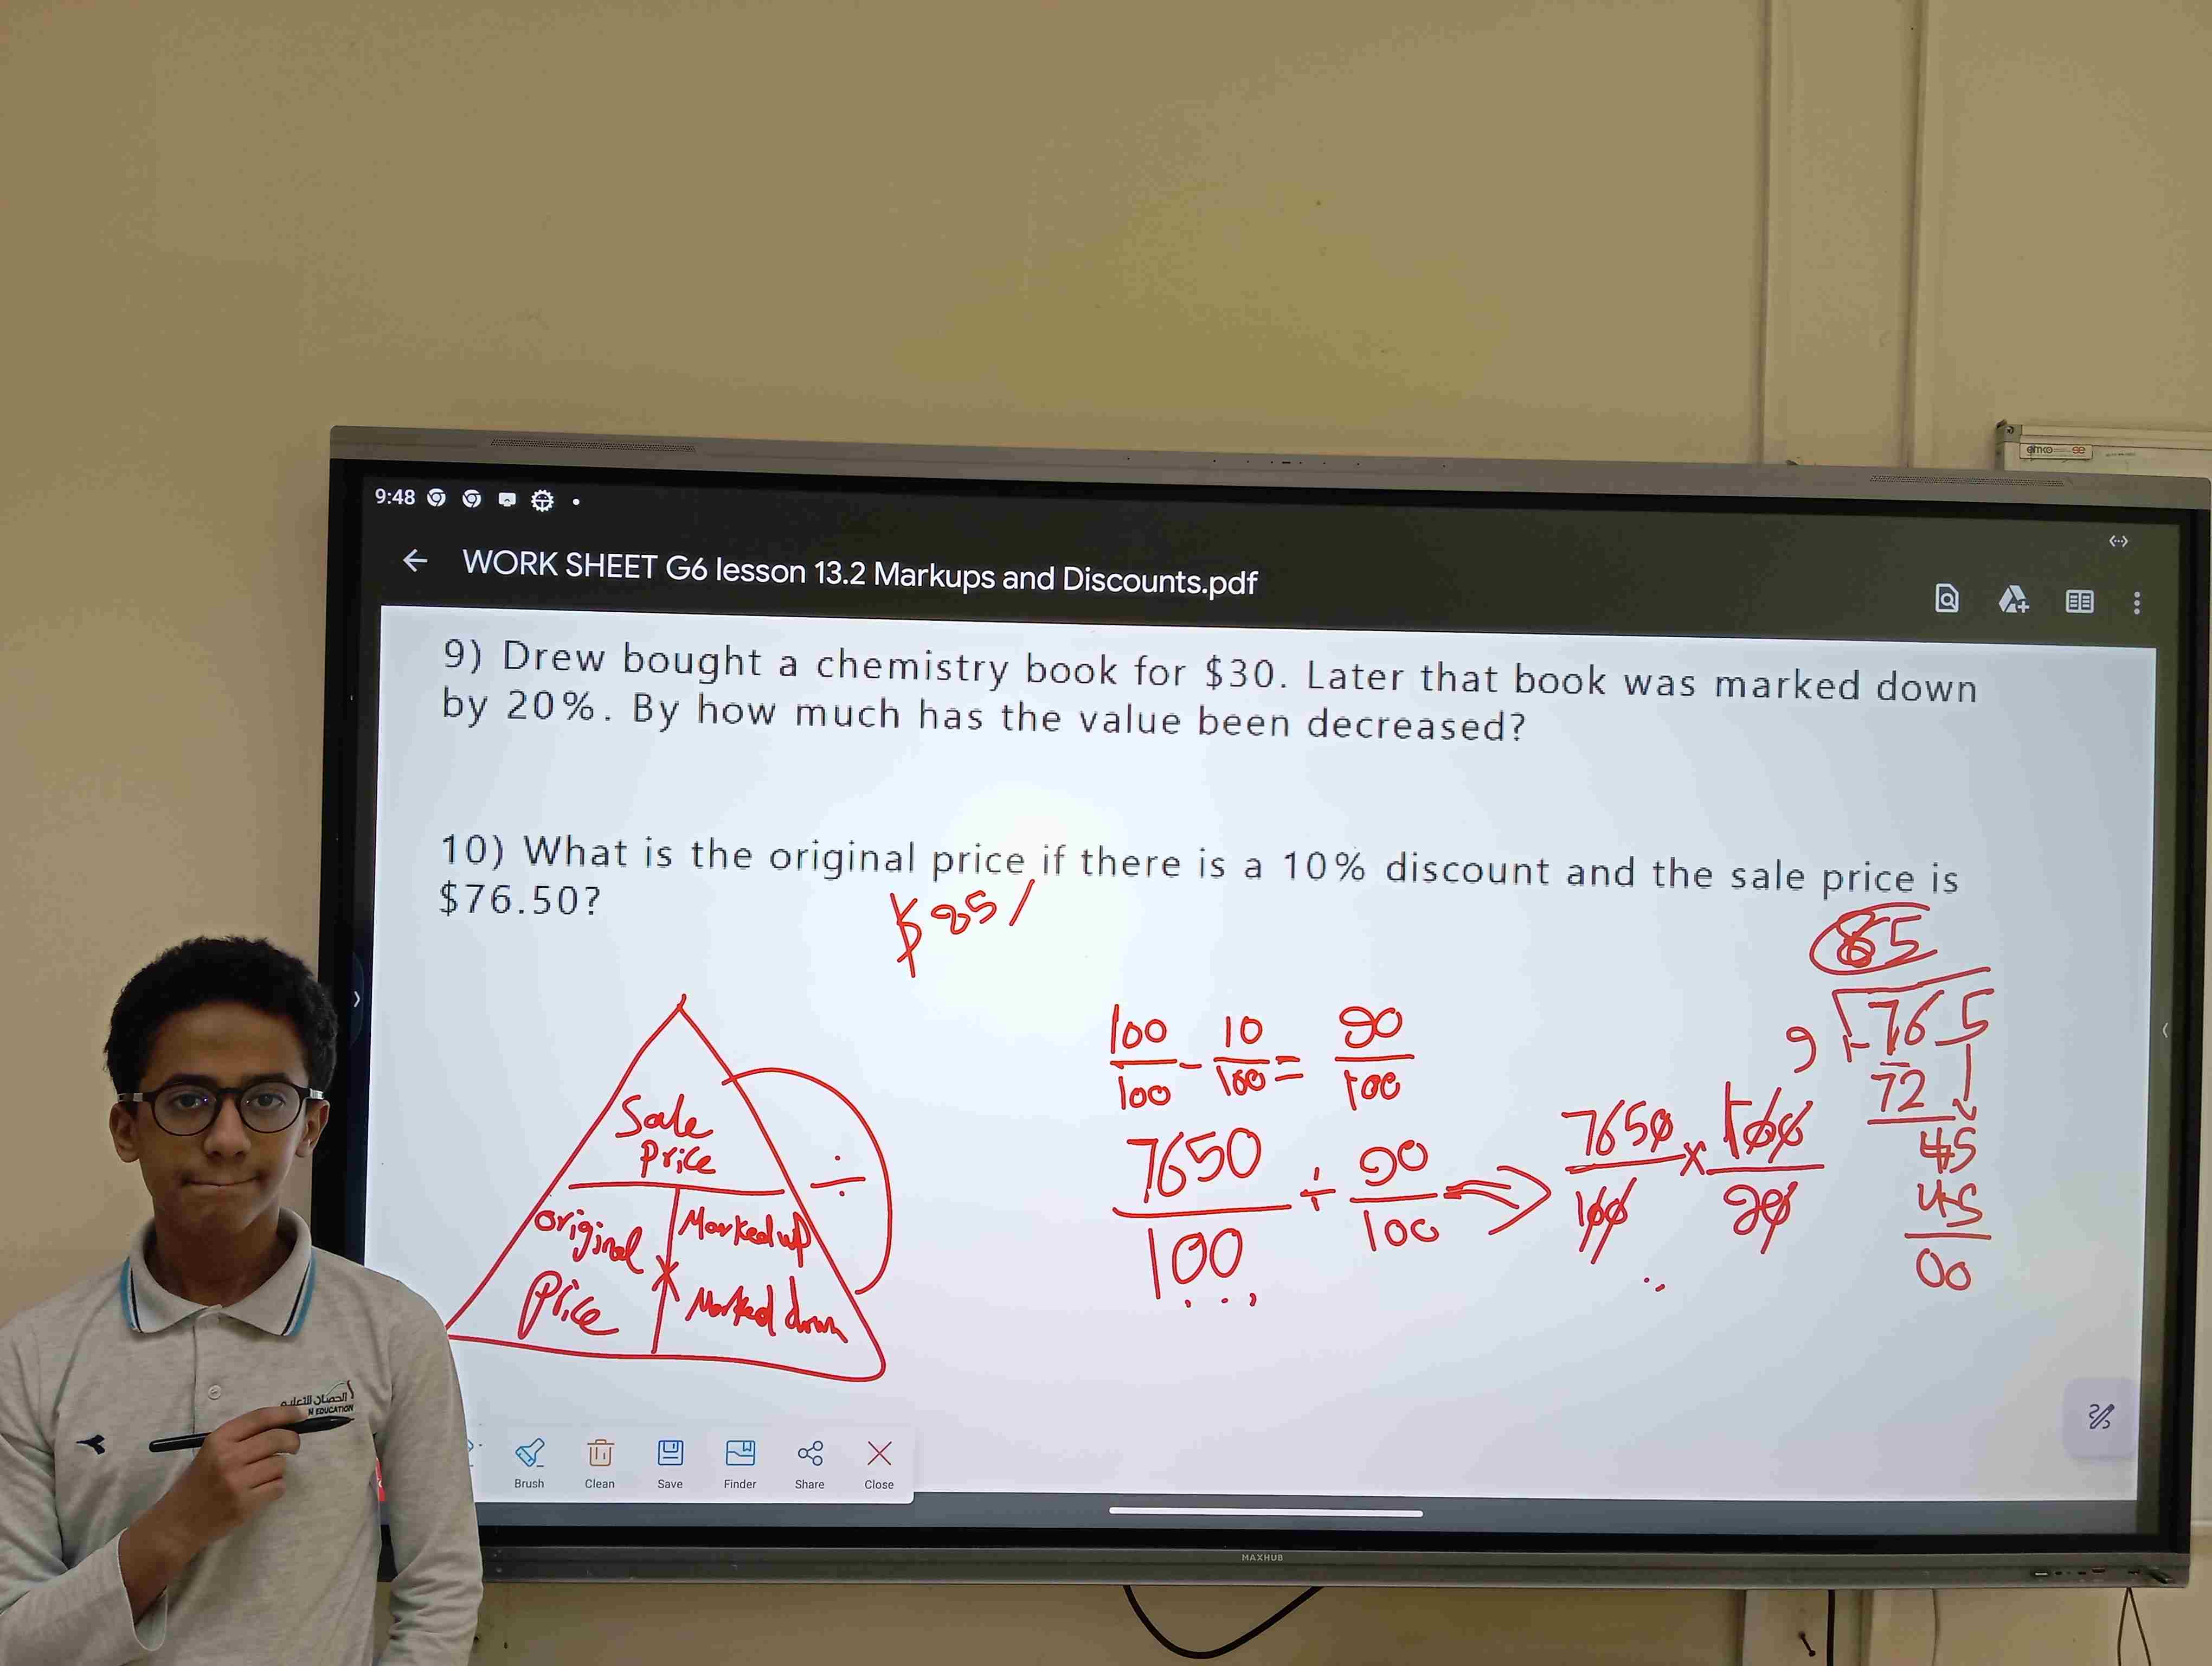 eimco
9:48
WORK SHEET G6 lesson 13.2 Markups and Discounts.pdf
9) Drew bought a chemistry book for $30. Later that book was marked down
by 20%. By how much has the value been decreased?
10) What is the original price if there is a 10% discount and the sale price is
$76.50?
$85/
85
100/100 - 10/100 = 90/100
9 765
72
45
45
00
7650/100 ÷ 90/100 ⇒ 7650/100 × 100/90
Sale
Price
÷
original
Price
×
Marked up
Marked down
الحصان للتعليم
N EDUCATION
Brush Clean Save Finder Share Close
MAXHUB